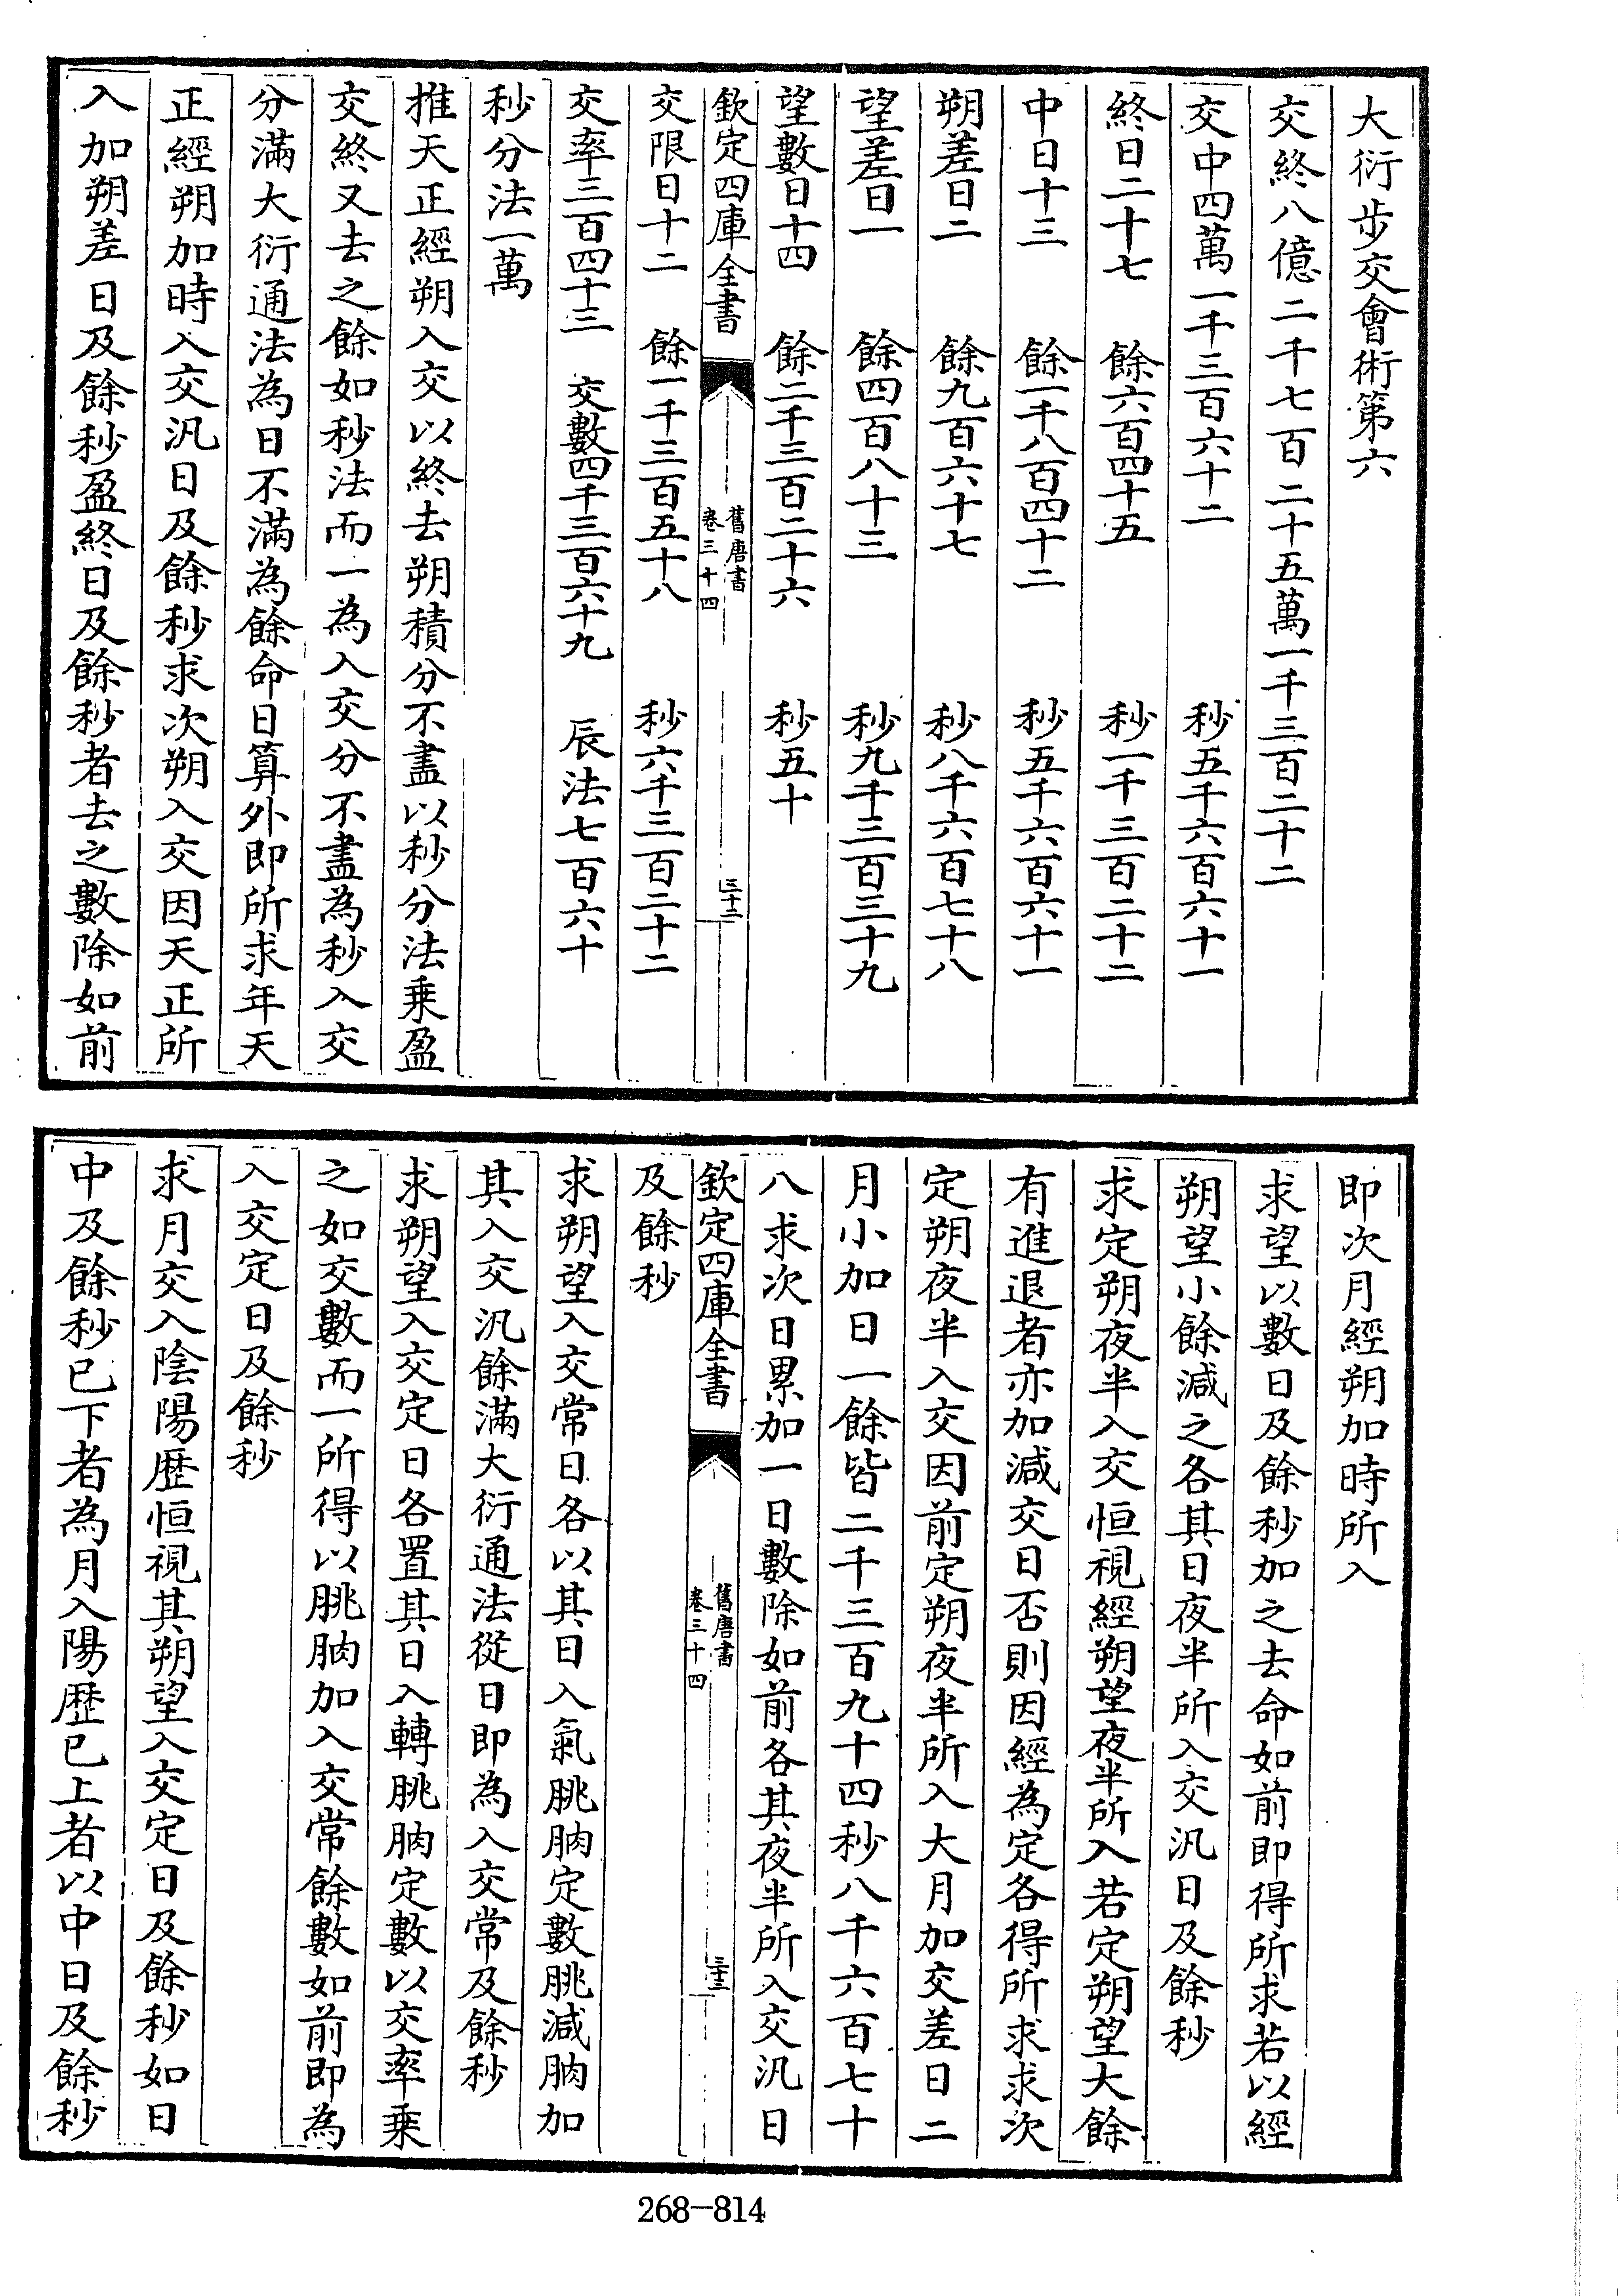 大衍步交會術第六
交終八億二千七百二十五萬一千三百二十二
交中四萬一千三百六十二　秒五千六百六十一
終日二十七　餘六百四十五　秒一千三百二十二
中日十三　餘一千八百四十二　秒五千六百六十一
朔差日二　餘九百六十七　秒八千六百七十八
望差日一　餘四百八十三　秒九千三百三十九
望數日十四　餘二千三百二十六　秒五十
欽定四庫全書　舊唐書卷三十四　三十二
交限日十二　餘一千三百五十八　秒六千三百二十二
交率三百四十三　交數四千三百六十九　辰法七百六十
秒分法一萬
推天正經朔入交以終去朔積分不盡以秒分法乗盈
交終又去之餘如秒法而一為入交分不盡為秒入交
分滿大衍通法為日不滿為餘命日算外即所求年天
正經朔加時入交汎日及餘秒求次朔入交因天正所
入加朔差日及餘秒盈終日及餘秒者去之數除如前
即次月經朔加時所入
求望以數日及餘秒加之去命如前即得所求若以經
朔望小餘減之各其日夜半所入交汎日及餘秒
求定朔夜半入交恒視經朔望夜半所入若定朔望大餘
有進退者亦加減交日否則因經為定各得所求求次
定朔夜半入交因前定朔夜半所入大月加交差日二
月小加日一餘皆二千三百九十四秒八千六百七十
八求次日累加一日數除如前各其夜半所入交汎日
欽定四庫全書　舊唐書卷三十四　三十三
及餘秒
求朔望入交常日各以其日入氣朓朒定數朓減朒加
其入交汎餘滿大衍通法從日即為入交常及餘秒
求朔望入交定日各置其日入轉朓朒定數以交率乗
之如交數而一所得以朓朒加入交常餘數如前即為
入交定日及餘秒
求月交入陰陽歴恒視其朔望入交定日及餘秒如日
中及餘秒已下者為月入陽歴已上者以中日及餘秒
268-814